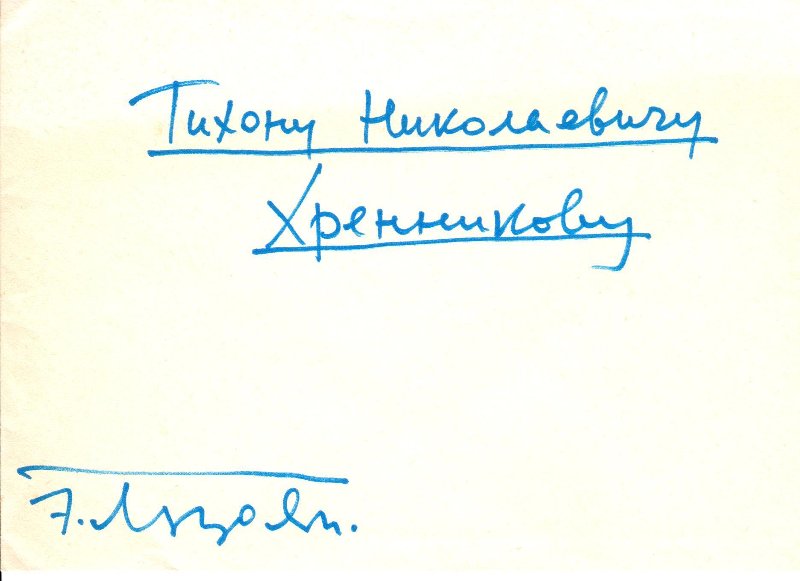 Тихону Николаевичу
Хренникову
Э. Мирзоян.